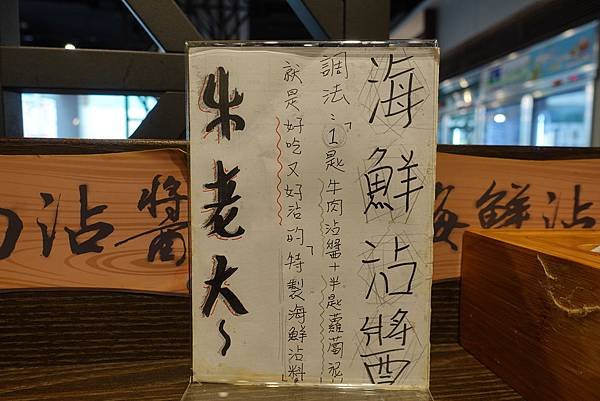 海鮮沾醬
調法：「①匙牛肉沾醬+半匙蘿蔔泥」
就是好吃又好沾的「特製海鮮沾料」
牛老大~
肉沾醬
海鮮沾